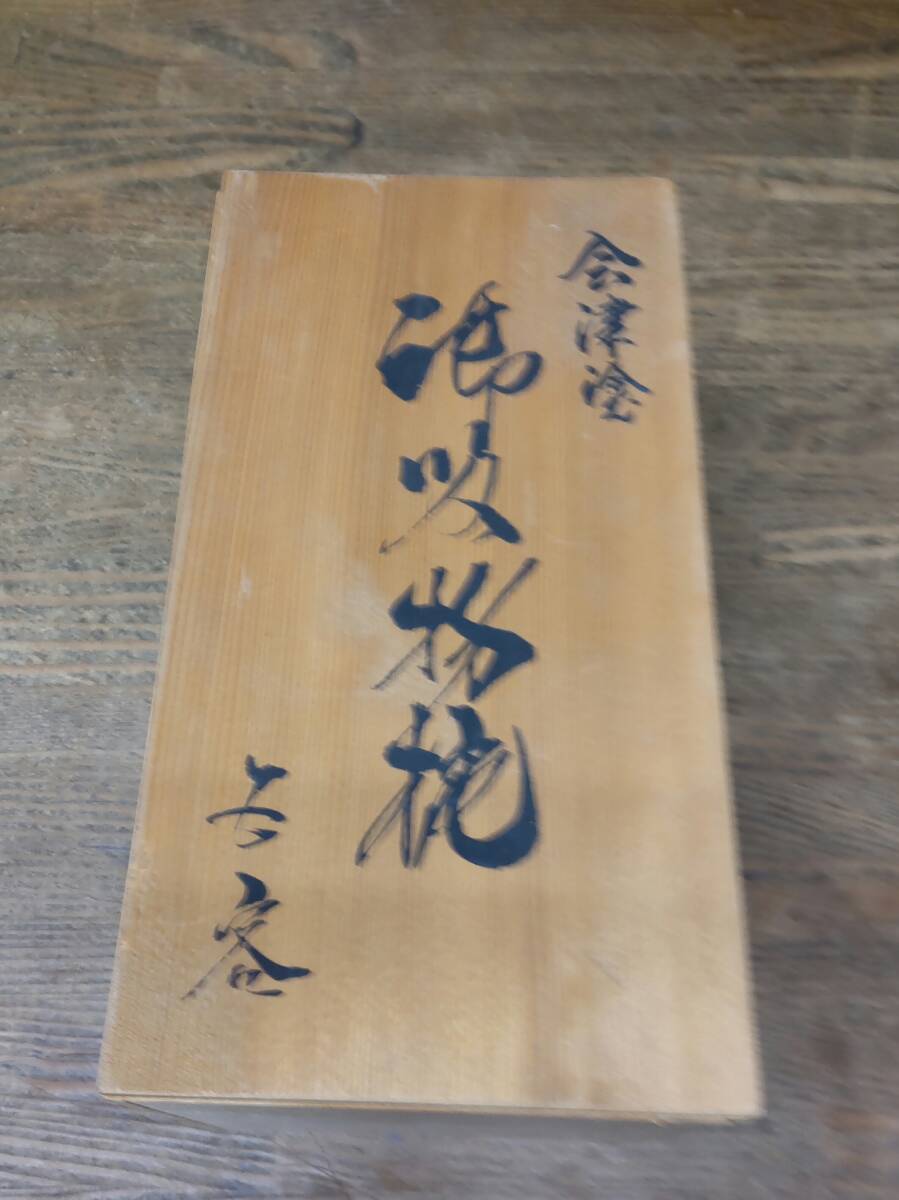 会津塗
御吸物椀
六客